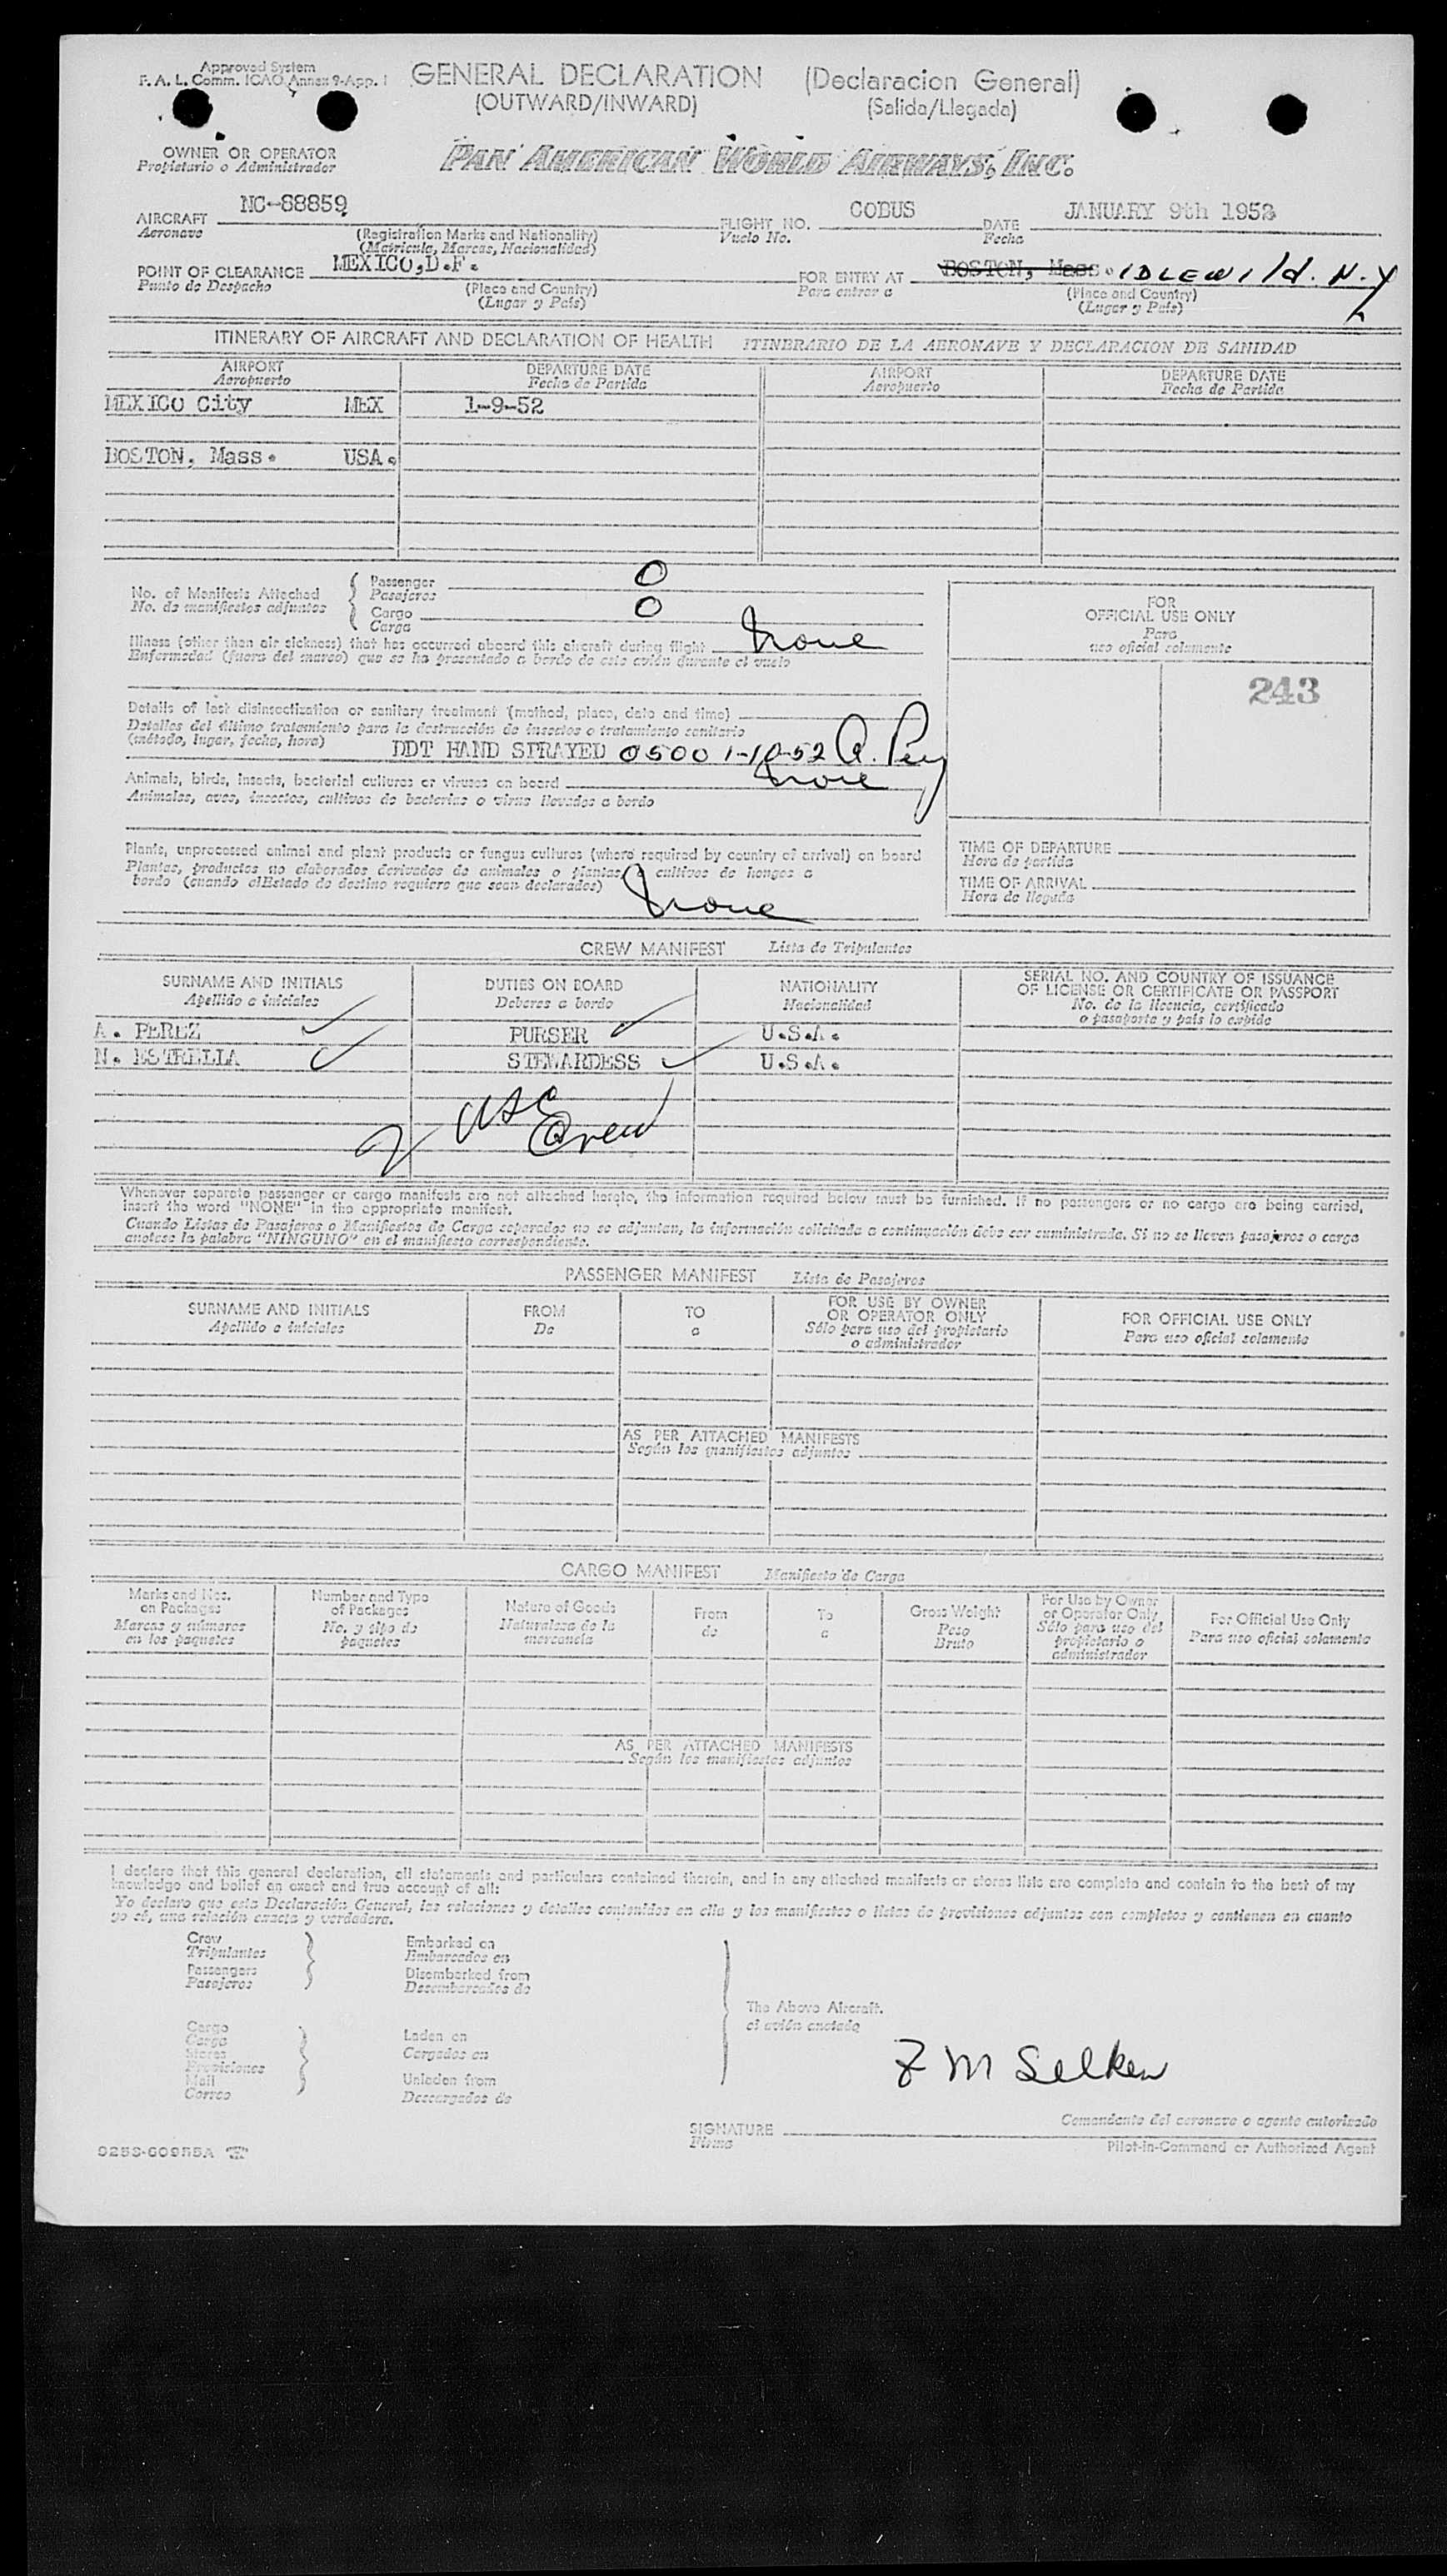 Approved System
F. A. L. Comm. ICAO Annex 9-App. 1
GENERAL DECLARATION (Declaracion General)
(OUTWARD/INWARD) (Salida/Llegada)
OWNER OR OPERATOR
Propietario o Administrador
PAN AMERICAN WORLD AIRWAYS, INC.
AIRCRAFT NC-88859 FLIGHT NO. COBUS DATE JANUARY 9th 1952
Aeronave Vuelo No. Fecha
(Registration Marks and Nationality)
(Matricula, Marcas, Nacionalidad)
POINT OF CLEARANCE MEXICO,D.F. FOR ENTRY AT BOSTON, Mass. IDLEWILD. N.Y
Punto de Despacho (Place and Country) Para entrar a (Place and Country)
(Lugar y País) (Lugar y País)
ITINERARY OF AIRCRAFT AND DECLARATION OF HEALTH ITINERARIO DE LA AERONAVE Y DECLARACION DE SANIDAD
AIRPORT DEPARTURE DATE AIRPORT DEPARTURE DATE
Aeropuerto Fecha de Partida Aeropuerto Fecha de Partida
MEXICO City MEX 1-9-52
BOSTON, Mass. USA.
No. of Manifests Attached
No. de manifiestos adjuntos
Passenger 0
Pasajeros
Cargo 0
Carga
Illness (other than air sickness) that has occurred aboard this aircraft during flight None
Enfermedad (fuera del mareo) que se ha presentado a bordo de este avión durante el vuelo
Details of last disinsectization or sanitary treatment (method, place, date and time)
Detalles del último tratamiento para la destrucción de insectos o tratamiento sanitario
(método, lugar, fecha, hora) DDT HAND SPRAYED 0500 1-10-52
Animals, birds, insects, bacterial cultures or viruses on board None
Animales, aves, insectos, cultivos de bacterias o virus llevados a bordo
Plants, unprocessed animal and plant products or fungus cultures (where required by country of arrival) on board
Plantas, productos no elaborados derivados de animales o plantas, o cultivos de hongos a
bordo (cuando elEstado de destino requiere que sean declarados) None
FOR
OFFICIAL USE ONLY
Para
uso oficial solamente
243
TIME OF DEPARTURE
Hora de partida
TIME OF ARRIVAL
Hora de llegada
CREW MANIFEST Lista de Tripulantes
SURNAME AND INITIALS DUTIES ON BOARD NATIONALITY SERIAL NO. AND COUNTRY OF ISSUANCE
OF LICENSE OR CERTIFICATE OR PASSPORT
Apellido e iniciales Deberes a bordo Nacionalidad No. de la licencia, certificado
o pasaporte y país lo expide
A. PEREZ PURSER U.S.A.
N. ESTRELLA STEWARDESS U.S.A.
2 USC
Crew
Whenever separate passenger or cargo manifests are not attached hereto, the information required below must be furnished. If no passengers or no cargo are being carried,
insert the word "NONE" in the appropriate manifest.
Cuando Listas de Pasajeros o Manifiestos de Carga separados no se adjuntan, la información solicitada a continuación debe ser suministrada. Si no se lleven pasajeros o carga
anotese la palabra "NINGUNO" en el manifiesto correspondiente.
PASSENGER MANIFEST Lista de Pasajeros
SURNAME AND INITIALS FROM TO FOR USE BY OWNER
OR OPERATOR ONLY FOR OFFICIAL USE ONLY
Apellido e iniciales De a Sólo para uso del propietario
o administrador Para uso oficial solamente
AS PER ATTACHED MANIFESTS
Según los manifiestos adjuntos
CARGO MANIFEST Manifiesto de Carga
Marks and Nos.
on Packages
Marcas y números
en los paquetes
Number and Type
of Packages
No. y tipo de
paquetes
Nature of Goods
Naturaleza de la
mercancía
From
de
To
a
Gross Weight
Peso
Bruto
For Use by Owner
or Operator Only
Sólo para uso del
propietario o
administrador
For Official Use Only
Para uso oficial solamente
AS PER ATTACHED MANIFESTS
Según los manifiestos adjuntos
I declare that this general declaration, all statements and particulars contained therein, and in any attached manifests or stores lists are complete and contain to the best of my
knowledge and belief an exact and true account of all:
Yo declaro que esta Declaración General, las relaciones y detalles contenidos en ella y los manifiestos o listas de provisiones adjuntas son completos y contienen en cuanto
yo sé, una relación exacta y verdadera.
Crew
Tripulantes
Passengers
Pasajeros
Embarked on
Embarcados en
Disembarked from
Desembarcados de
Cargo
Carga
Stores
Provisiones
Mail
Correo
Laden on
Cargados en
Unladen from
Descargados de
The Above Aircraft.
el avión anotado
Z M Selken
SIGNATURE
Firma
Comandante del aeronave o agente autorizado
Pilot-in-Command or Authorized Agent